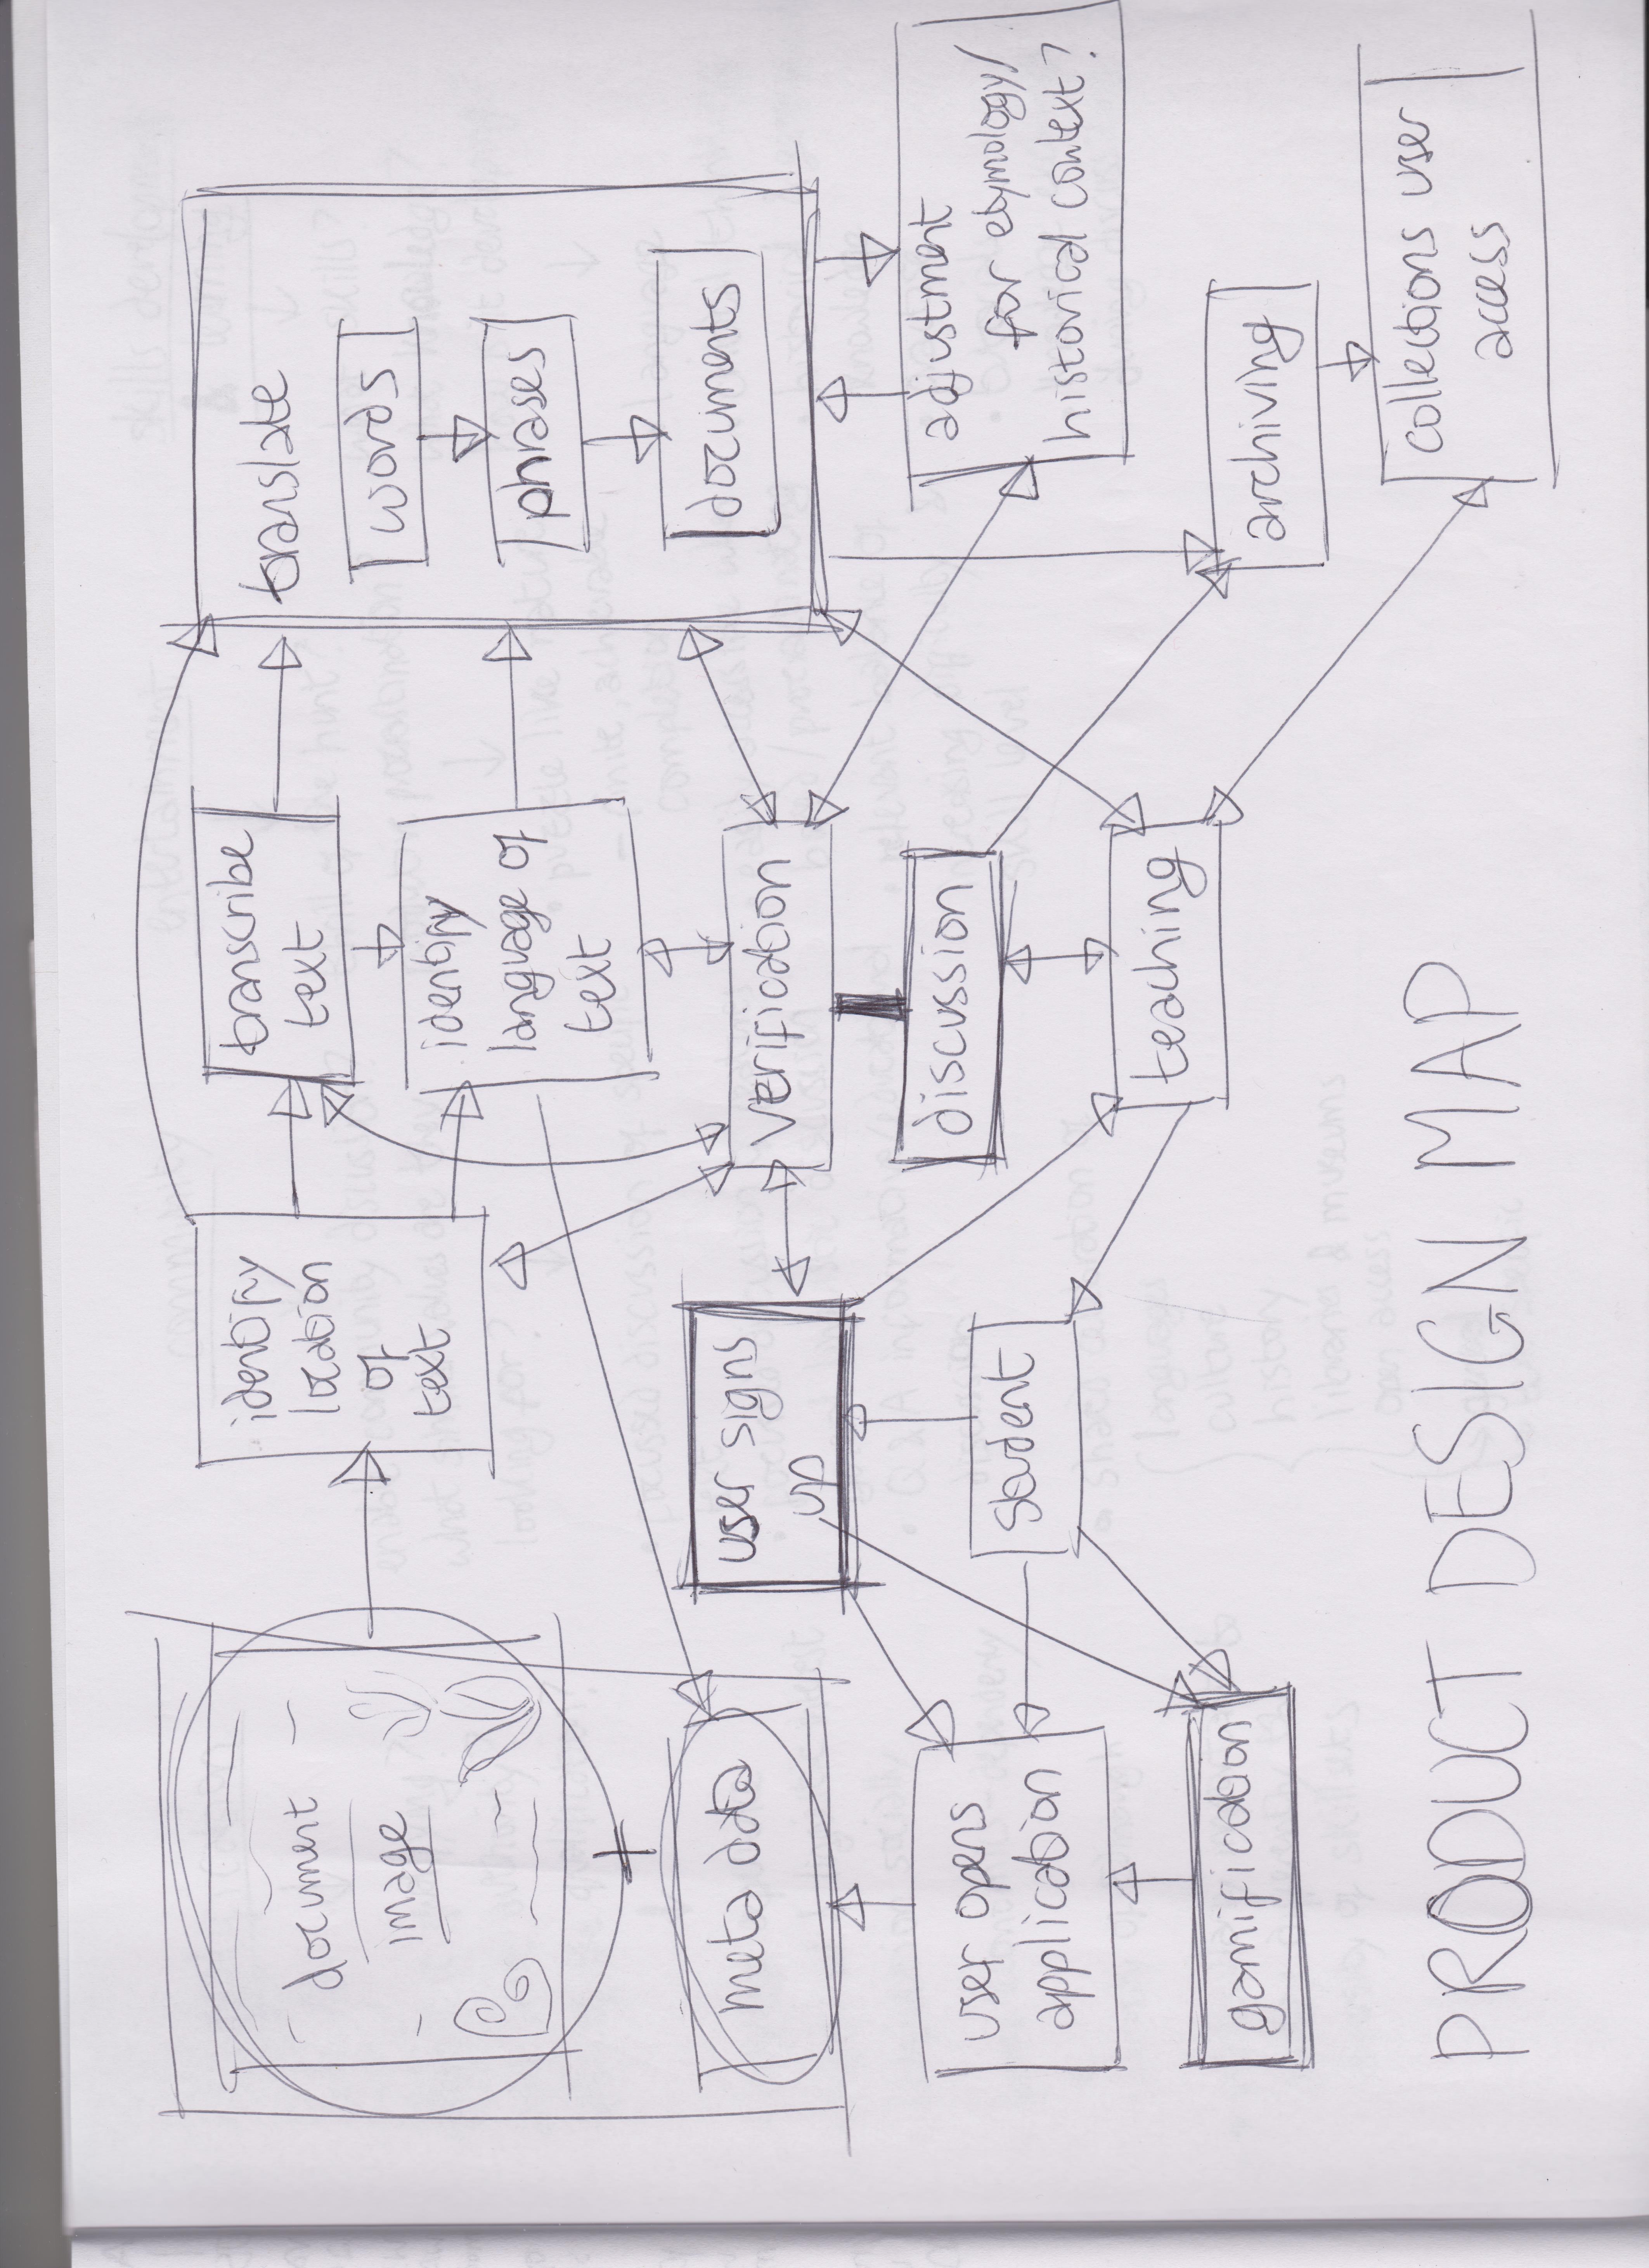 document
image
+
meta data
user opens
application
gamification
identify
location
of
text
user signs
up
student
transcribe
text
identify
language of
text
verification
discussion
teaching
translate
words
phrases
documents
adjustment
for etymology/
historical context?
archiving
collections user
access
PRODUCT DESIGN MAP